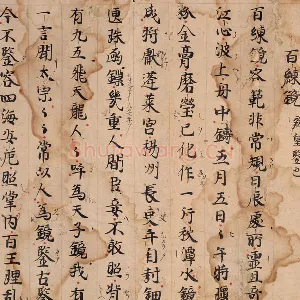 百練鏡
百練鏡容範非常規日辰處所靈且奇
江心波上舟中鑄五月五日々午時瓊
粉金膏磨瑩已化作一片秋潭水鏡
成将獻蓬萊宮楊州長吏手自封鈿
匣珠函鏁幾重人間臣妾不敢照背
有九五飛天龍人々呼為天子鏡我有
一言聞太宗々々常以人為鏡鑒古鑒
今不鑒容四海安危照掌内百王理乱